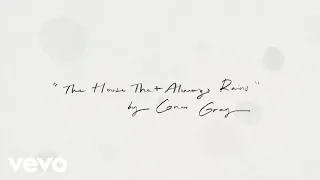 "The House That Always Rains"
by Conan Gray
vevo